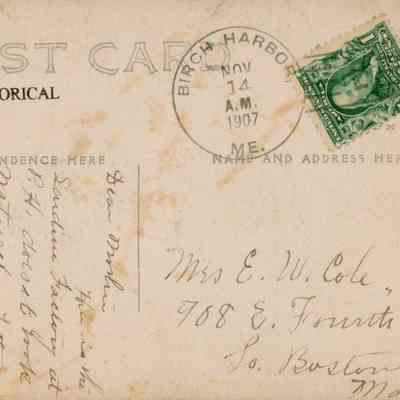 ST CARD
ORICAL
BIRCH HARBOR
NOV
14
A.M.
1907
ME.
NDENCE HERE
NAME AND ADDRESS HER
Dear Mother
This is the
Sardine Factory at
B.H. does it look
natural
Mrs E. W. Cole,
708 E. Fourth
So. Boston